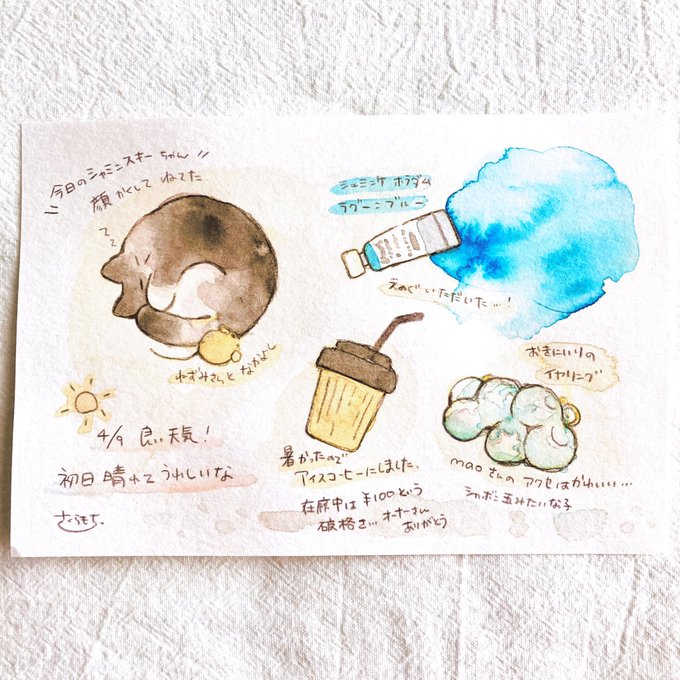 今日のシャミニスキーちゃん
顔かくしてねてた
zz
ねずみさんとなかよし
4/9 良い天気!
初日晴れてうれしいな
さくらもち。
シュミンケ ホラダム
ラグーンブルー
えのぐいただいた…!
暑かったので
アイスコーヒーにしました、
在廊中は¥100という
破格さ… オーナーさん
ありがとう
おきにいりの
イヤリング
maoさんのアクセはかわいい…
シャボン玉みたいな子